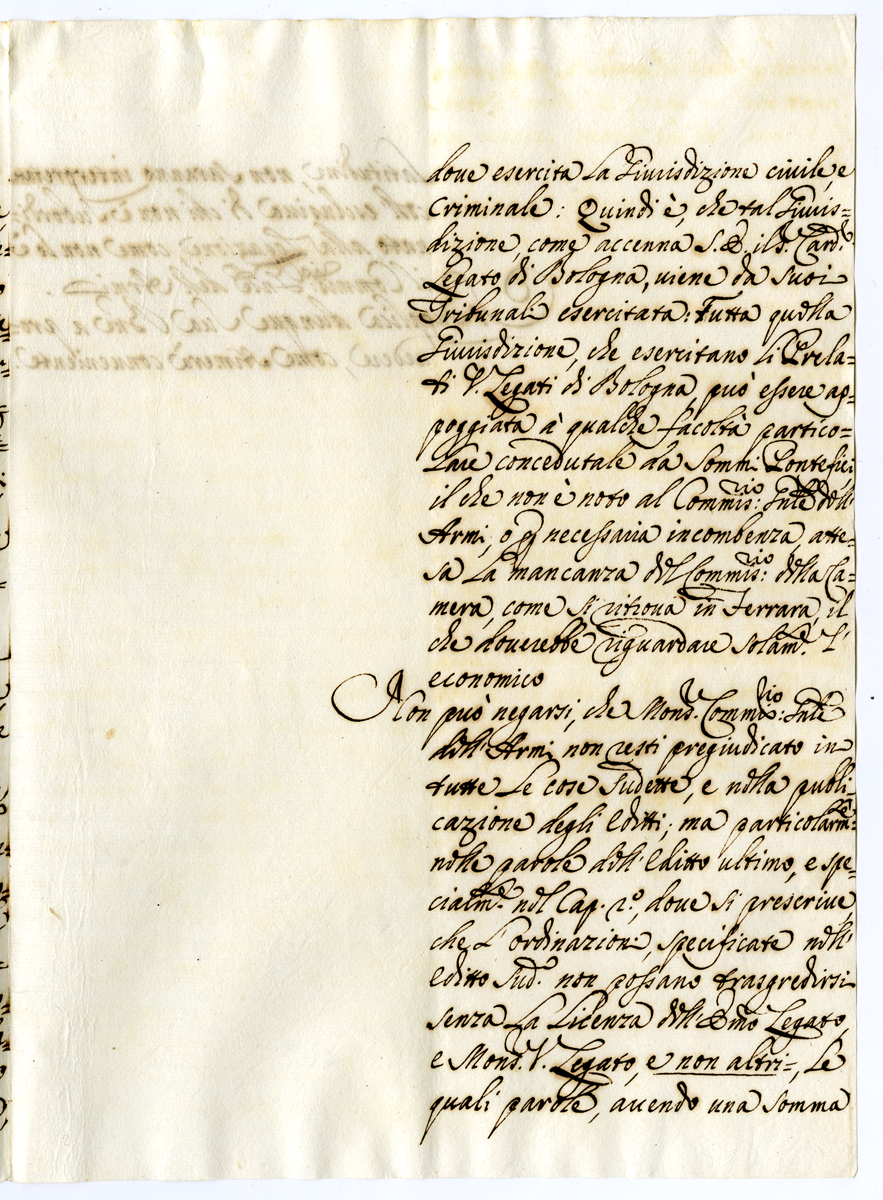 doue esercita La Giurisdizione ciuile, e
Criminale: Quindi è, che tal Giuris=
dizione, come accenna S. E. il S. Card.
Legato di Bologna, uiene da suoi
Tribunali esercitata: Tutta quella
Giurisdizione, che esercitano li Prela=
ti V. Legati di Bologna, può essere ap=
poggiata à qualche facoltà partico=
Lare concedutale da Sommi Pontefici
il che non è noto al Commis:rio Gnle dell'
Armi, o p necessaria incombenza, atte=
sa La mancanza del Commis:rio della Ca=
mera, come si ritroua in Ferrara, il
che douerebbe riguardare solam.e L'
economico
Non può negarsi, che Mons.r Commis:rio Gnle
dell'Armi non resti pregiudicato in
tutte Le cose sudette, e nella publi=
cazione degli Editti; ma particolarm.e
nelle parole dell'Editto ultimo, e spe=
cialm.e nel Cap. 2.o, doue si prescriue,
che L'ordinazioni, specificate nell'
Editto Sud.o non possano trasgredirsi
senza La Licenza dell'Emo Legato,
e Mons.r V. Legato, e non altri=, Le
quali parole, auendo una somma